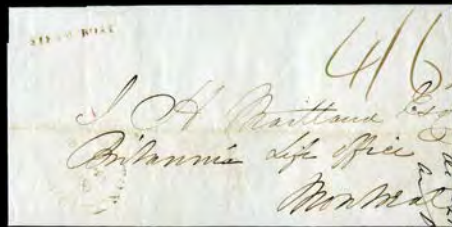 STEAM BOAT
4/6
J H Maitland Esq
Britannia Life Office
Montreal